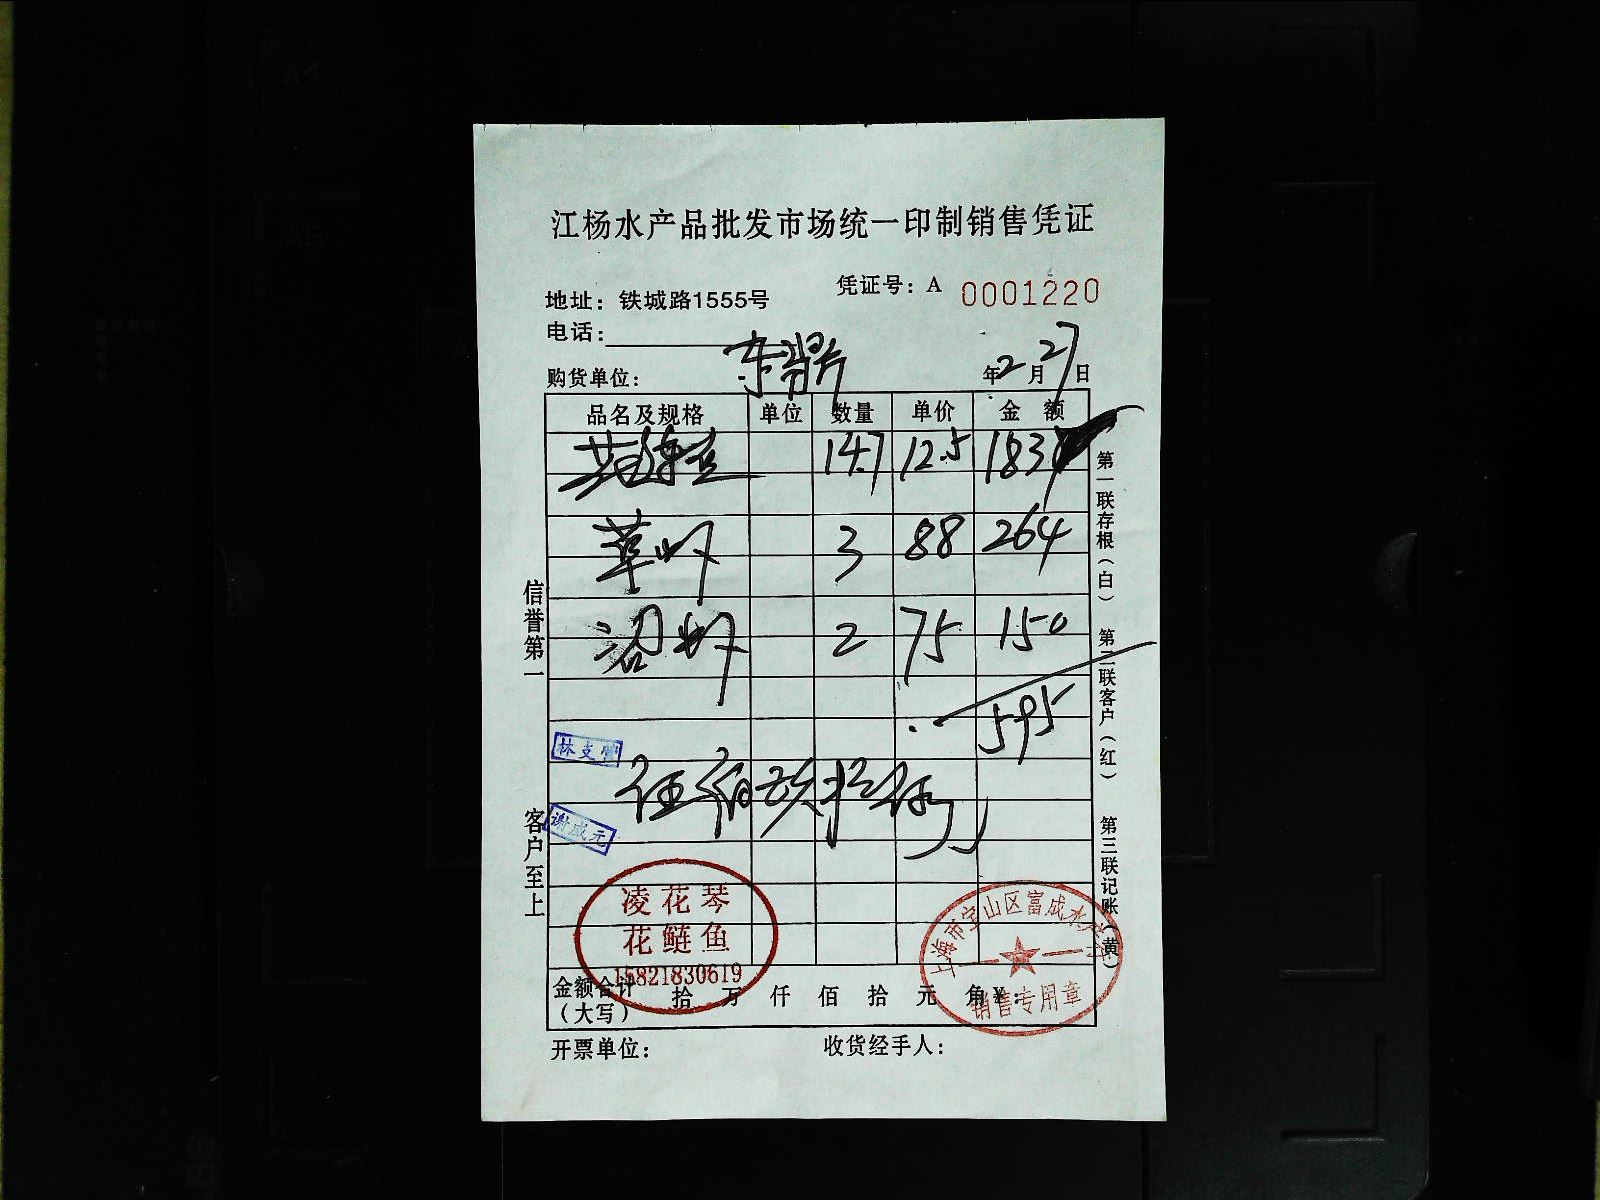 江杨水产品批发市场统一印制销售凭证
凭证号：A 0001220
地址：铁城路1555号
电话：
购货单位： 东鼎 年2月27日
品名及规格 单位 数量 单价 金 额
14.7 12.5 183
草虾 3 88 264
沼虾 2 75 150
595
伍佰玖拾伍
信誉第一
客户至上
第一联存根（白）
第二联客户（红）
第三联记账（黄）
林支管
谢成元
凌花琴
花鲢鱼
15821830619
上海市宝山区富成水产行
销售专用章
金额合计（大写） 拾 万 仟 佰 拾 元 角 ￥：
开票单位： 收货经手人：